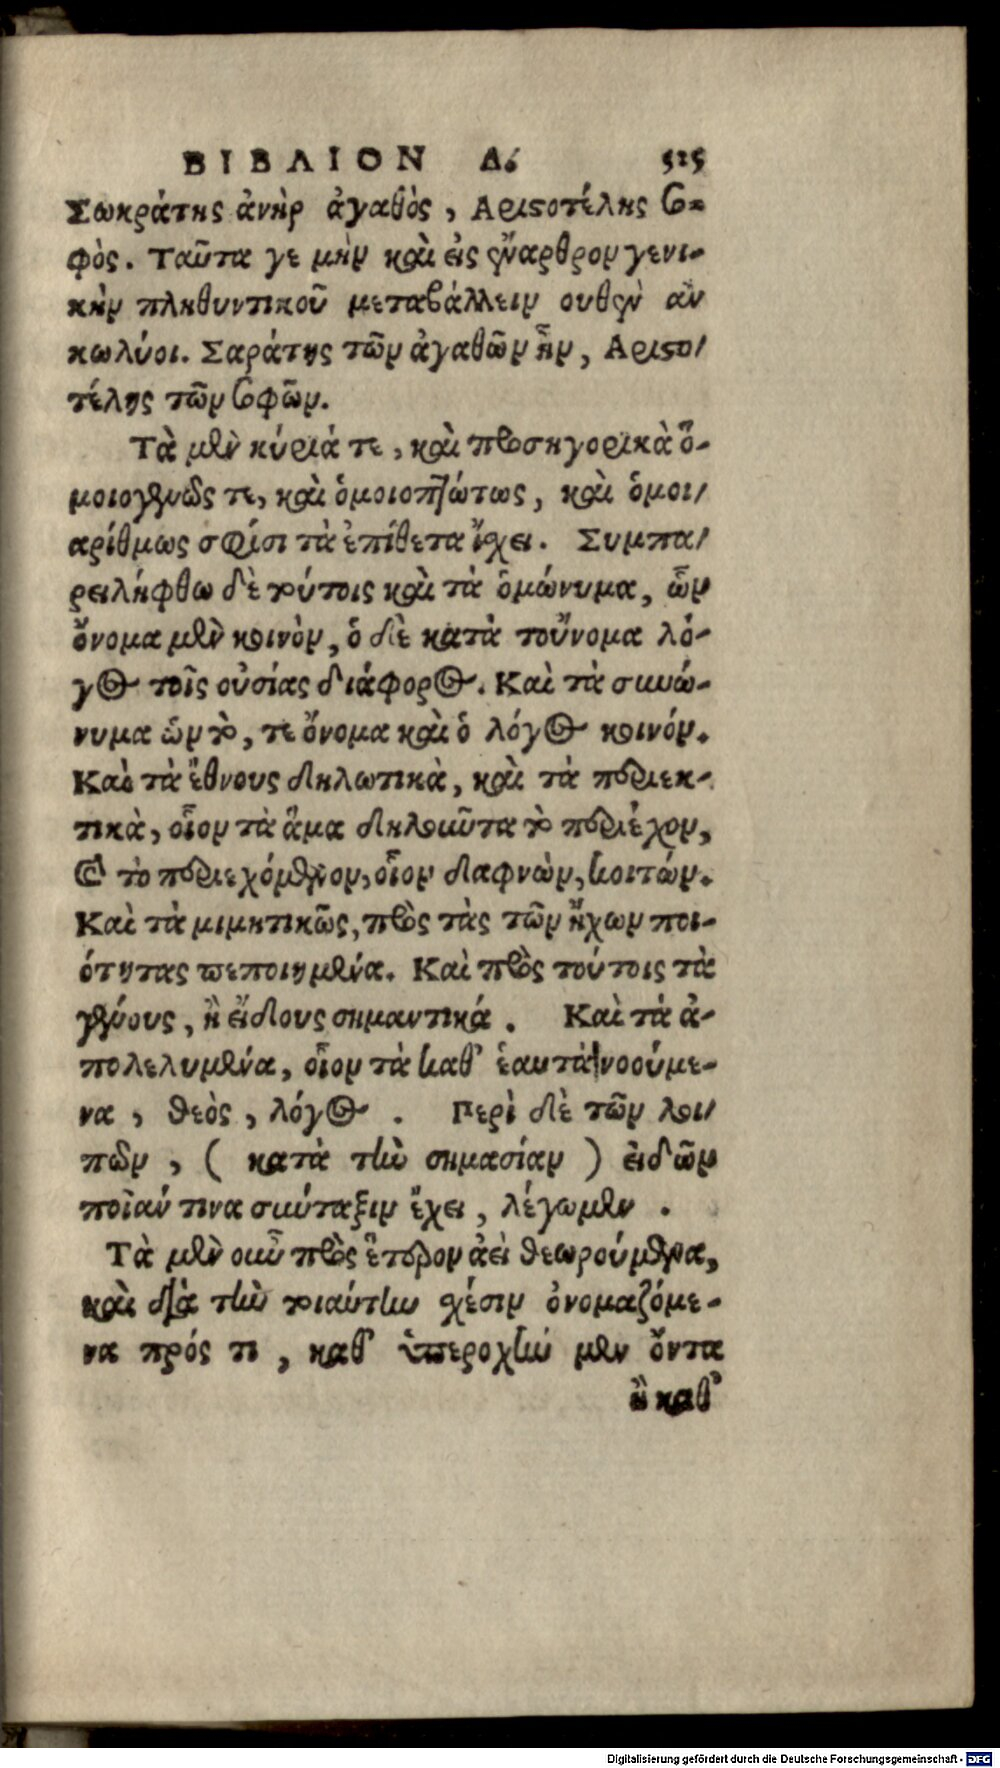 ΒΙΒΛΙΟΝ Δ. 515
Σωκράτης ἀνὴρ ἀγαθὸς, Αριστοτέλης σο-
φὸς. Ταῦτα γε μὴν καὶ εἰς ἔναρθρον γενι-
κὴν πληθυντικοῦ μεταβάλλειν ουθὲν ἀν
κωλύοι. Σαράτης τῶν ἀγαθῶν ἦν, Αριστο/
τέλης τῶν σοφῶν.
Τὰ μὲν κύριά τε, καὶ προσηγορικὰ ὅ-
μοιογενῶς τε, καὶ ὁμοιοπτώτως, καὶ ὁμοι/
αρίθμως σφίσι τὰ ἐπίθετα ἴχει. Συμπα/
ρειλήφθω δὲ τούτοις καὶ τὰ ὁμώνυμα, ὧν
ὄνομα μὲν κοινὸν, ὁ δὲ κατὰ τοὔνομα λό-
γος τοῖς οὐσίας διάφορος. Καὶ τὰ συνώ-
νυμα ὧν τό, τε ὄνομα καὶ ὁ λόγος κοινόν.
Καὶ τὰ ἔθνους δηλωτικὰ, καὶ τὰ περιεκ-
τικὰ, οἷον τὰ ἅμα δηλοῦντα τὸ περιέχον,
καὶ τὸ περιεχόμενον, οἷον δαφνὼν, κοιτών.
Καὶ τὰ μιμητικῶς, πρὸς τὰς τῶν ἤχων ποι-
ότητας πεποιημένα. Καὶ πρὸς τούτοις τὰ
γένους, ἢ εἴδους σημαντικά. Καὶ τὰ ἀ-
πολελυμένα, οἷον τὰ καθ' ἑαυτὰ νοούμε-
να, θεὸς, λόγος. Περὶ δὲ τῶν λοι/
πῶν, ( κατὰ τὴν σημασίαν ) εἰδῶν
ποῖαν τινα σύνταξιν ἔχει, λέγωμεν.
Τὰ μὲν οὖν πρὸς ἕτερον ἀεὶ θεωρούμενα,
καὶ διὰ τὴν τοιαύτην σχέσιν ὀνομαζόμε-
να πρός τι, καθ' ὑπεροχὴν μὲν ὄντα
ἢ καθ'
Digitalisierung gefördert durch die Deutsche Forschungsgemeinschaft - DFG